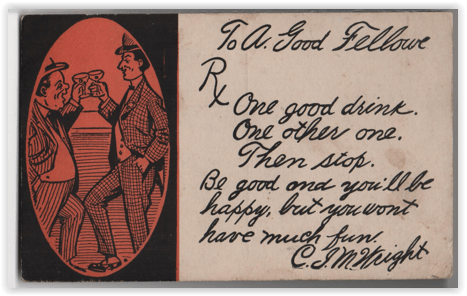 To A. Good Fellowe
Rx
One good drink.
One other one.
Then stop.
Be good and you'll be
happy, but you wont
have much fun.
C. J. McWright